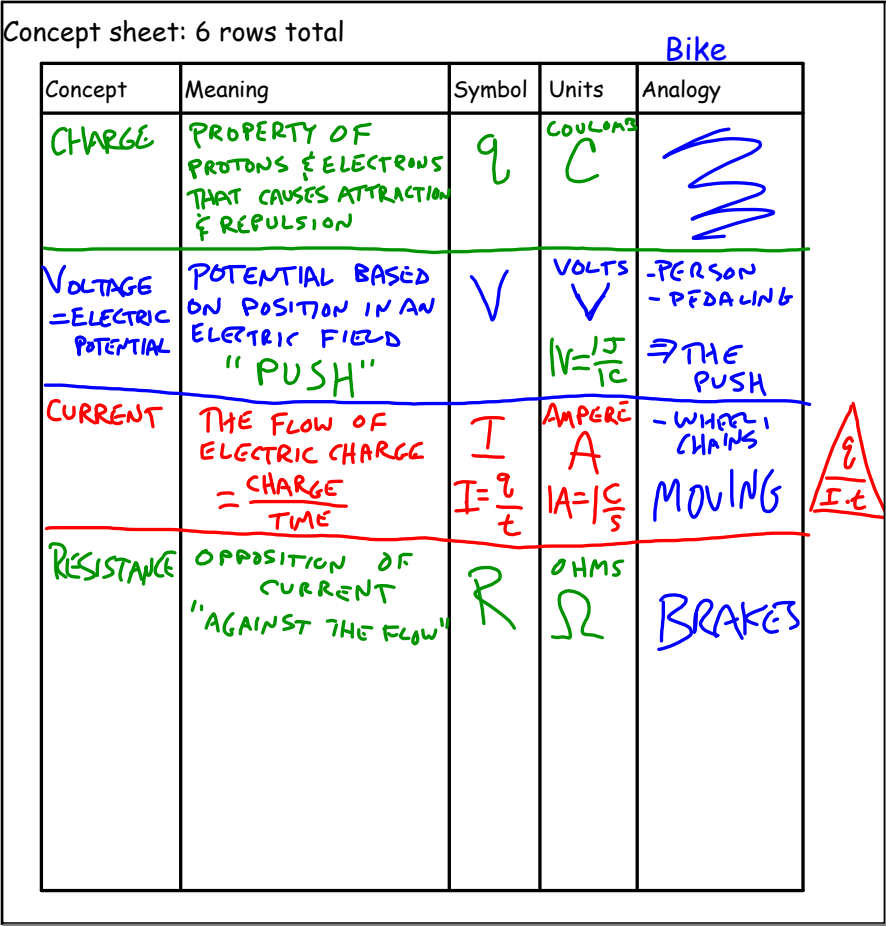 Concept sheet: 6 rows total
Bike
Concept Meaning Symbol Units Analogy
CHARGE
PROPERTY OF
PROTONS & ELECTRONS
THAT CAUSES ATTRACTION
& REPULSION
q
COULOMB
C
VOLTAGE
=ELECTRIC
POTENTIAL
POTENTIAL BASED
ON POSITION IN AN
ELECTRIC FIELD
"PUSH"
V
VOLTS
V
1V=1J/1C
-PERSON
- PEDALING
⇒ THE
PUSH
CURRENT
THE FLOW OF
ELECTRIC CHARGE
= CHARGE/TIME
I
I=q/t
AMPERE
A
1A=1C/s
- WHEEL,
CHAINS
MOVING
q
I·t
RESISTANCE
OPPOSITION OF
CURRENT
"AGAINST THE FLOW"
R
OHMS
Ω
BRAKES